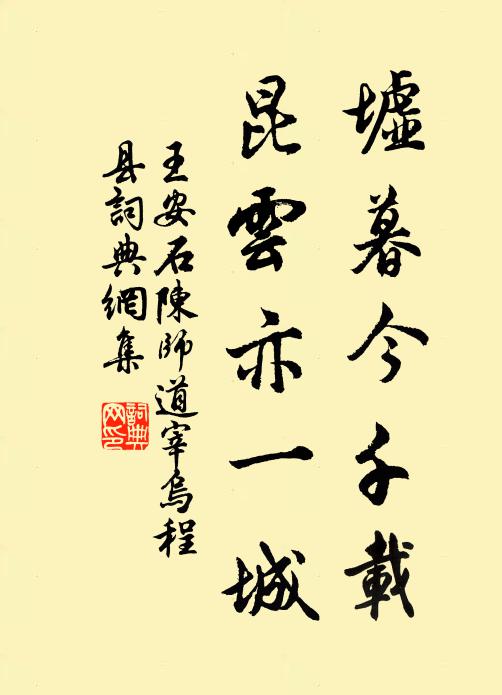 墟暮今千載
昆雲亦一城
王安石陳師道宰烏程
县詞典網集
詞典
网印